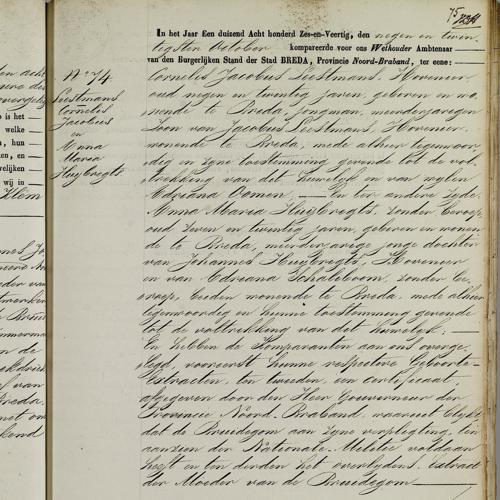 en acht
o is het
welke
, hun
en, en
welijken
wij in
Klom
N 74
Seestmans
Cornelis
Jacobus
en
Anna
Maria
Huijbregts
75
In het Jaar Een duisend Acht honderd Zes-en-Veertig, den negen en twin
tigsten October kompareerde voor ons Wethouder Ambtenaar
van den Burgerlijken Stand der Stad BREDA, Provincie Noord-Braband, ter eene:
Cornelis Jacobus Seestmans, Hovenier,
oud negen en twintig jaren, geboren en wo,
nende te Breda, jongman, meerderjarigen
Zoon van Jacobus Seestmans, Hovenier,
wonende te Breda, mede alhier tegenwoor,
dig en zijne toestemming gevende tot de vol,
trekking van dit huwelijk en van wijlen
Adriana Oomen, En ter andere zijde
Anna Maria Huijbregts, zonder beroep,
oud zeven en twintig jaren, geboren en wonen,
de te Breda, meerderjarige jonge dochter
van Johannes Huijbregts, Hovenier
en van Adriana Schaleboom, zonder be,
roep, beiden wonende te Breda, mede alhier
tegenwoordig en hunne toestemming gevende
tot de voltrekking van dit huwelijk.
En hebben de Komparanten aan ons overge,
legd, vooreerst hunne respective Geboorte-
Extracten, ten tweeden, een certificaat,
afgegeven door den Heer Gouverneur der
Provincie Noord-Braband, waaruit blijkt
dat de Bruidegom aan zijne verpligting, ten
aanzien der Nationale Militie voldaan
heeft en ten derden het overlijdens-Extract
der Moeder van de Bruidegom